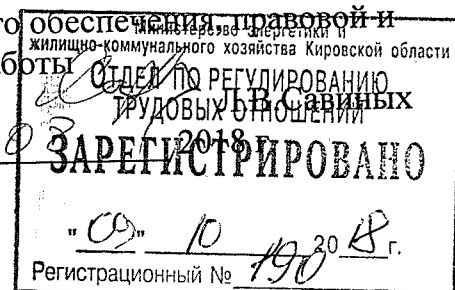 го обеспечения, правовой и
Министерство энергетики и
жилищно-коммунального хозяйства Кировской области
боты
ОТДЕЛ ПО РЕГУЛИРОВАНИЮ
ТРУДОВЫХ ОТНОШЕНИЙ
Л.В.Савиных
03 2018 г.
ЗАРЕГИСТРИРОВАНО
"09" 10 2018 г.
Регистрационный № 190